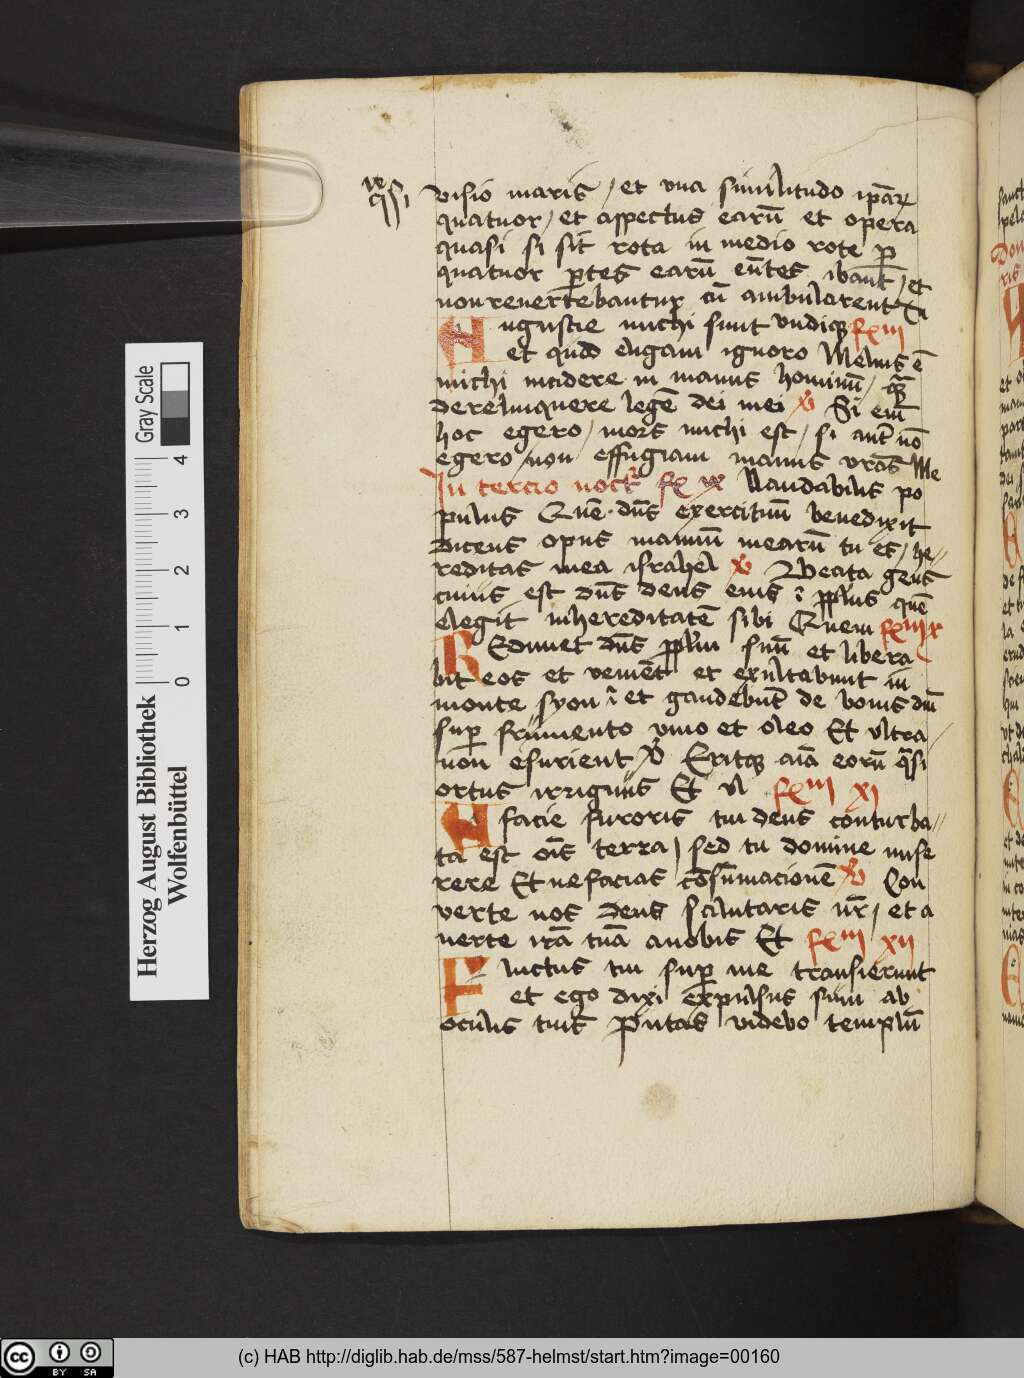 visio maris / et una similitudo ip̄aꝝ
quatuor / et aspectus earū et opera
quasi si sit rota in medio rote p̲
quatuor p̲tes earū eūtes ibant̄ / et
non revertebantur cū ambularent
Angustie michi sunt undiqꝫ
et quid eligam ignoro Melius ē
michi incidere in manus hominū / qͣ̄
derelinquere legē dei mei Si em̄
hoc egero / mors michi est / si aut̄ nō
egero / non effugiam manus vr̄as Me
In tercio noct̉ Laudabilis po
pulus Quē dn̄s exercituū benedixit
dicens opus manuū mearū tu es / he//
reditas mea israhel Beata gens
cuius est dn̄s deus eius pplus quē
elegit inhereditatē sibi Quem
Redimet dn̄s pplm̄ suū et libera
bit eos et venient̄ et exultabunt in
monte syon et gaudebūt de bonis dn̄i
sup̲ frumento vino et oleo Et ultra
non esurient Eritqꝫ aīa eorū qͣsi
ortus irriguus Et ul
A facie furoris tui deus conturba//
ta est oīs terra / sed tu domine mise
rere Et ne facias cōsūmacionē Con
verte nos deus salutaris nr̄ / et a
verte irā tuā a nobis Et xii
Fluctus tui sup̲ me transierunt
et ego dixi expulsus sum ab
oculis tuis putas videbo templū
Gray Scale
0 1 2 3 4
Herzog August Bibliothek
Wolfenbüttel
cc BY SA
(c) HAB http://diglib.hab.de/mss/587-helmst/start.htm?image=00160